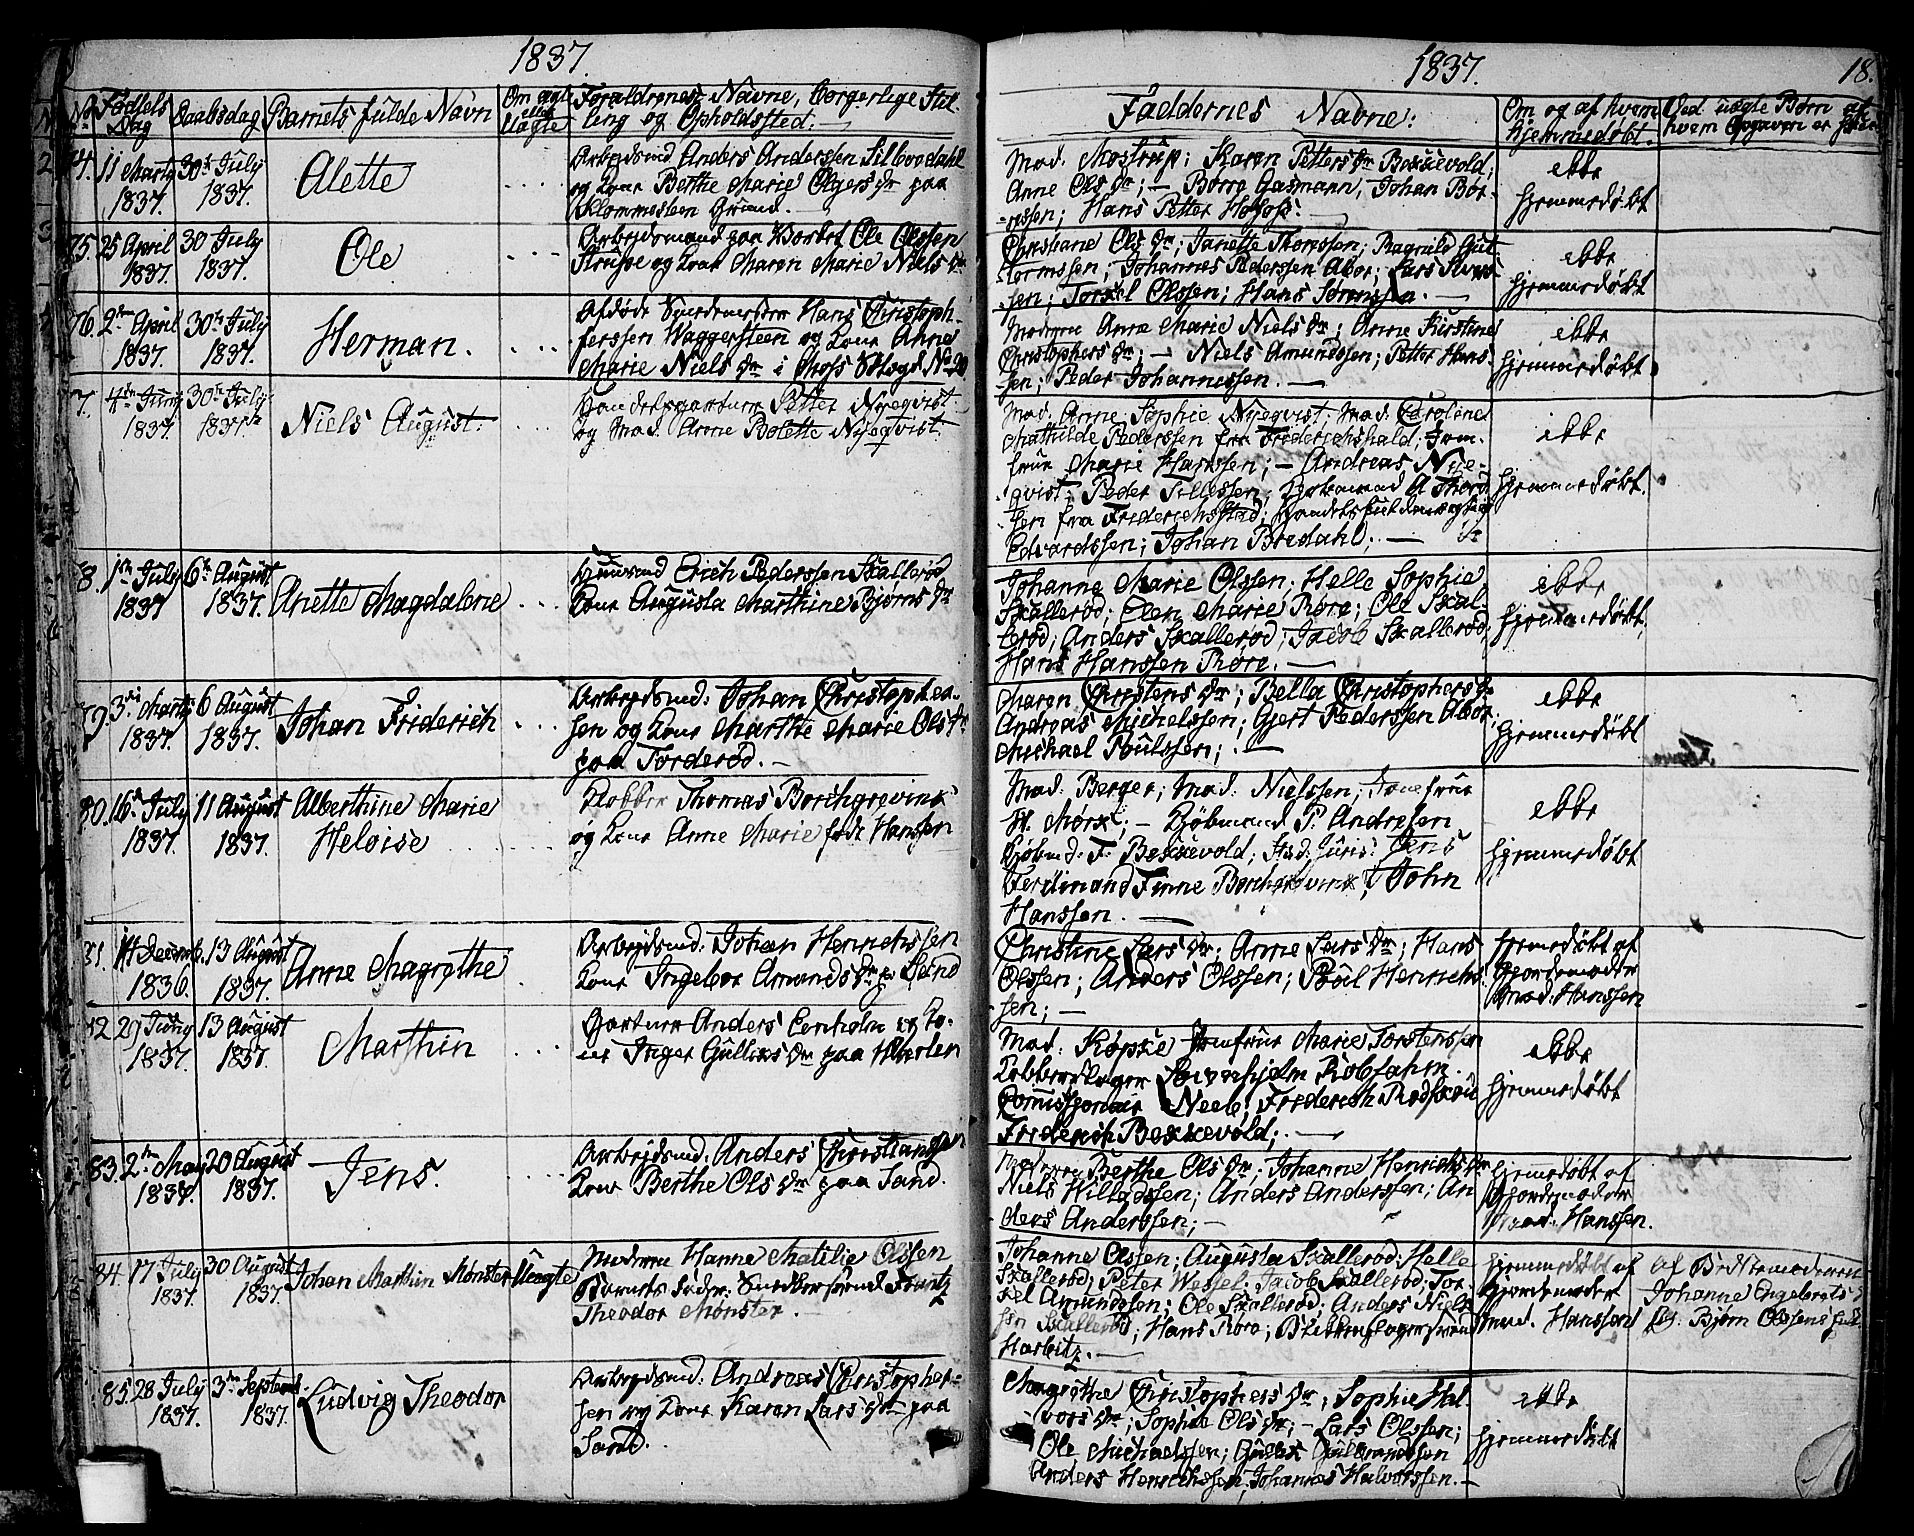 1837.
No
Fødsels Dag
Daabsdag
Barnets fulde Navn
Om ægte eller Uægte
Forældrenes Navne, borgerlige Stil-
ling og Opholdssted.
74. 11 Marts 1837. 30te July 1837. Alette
Arbejdsmd Anders Anderssen
og Kone Berthe Marie Olgers Dr paa
Klommesteen Grund.
75. 25 April 1837. 30 July 1837. Ole
Arbejdsmand paa Værket Ole Olssen
og Kone Maren Marie Niels Dr
76. 2den April 1837. 30te July 1837. Herman.
Afdøde Hans Christoph-
ferssen Waggersteen og Kone Anne
Marie Niels Dr i Moss No 20
7. 1837. 30te July 1837. Niels August.
Petter Nyeqvist
og Mad. Anne Bolette Nyeqvist.
78. 1ste July 1837 6te August 1837. Anette Magdalene
Huusmd Erich Pederssen Skallerød
Kone Augusta Marthine Bjørns Dr
79. 3die Marts 1837. 6 August 1837. Johan Friderich
Arbejdsmd: Johan Christophes-
sen og Kone Marthe Marie Ols Dr
paa Torderød.
80. 16de July 1837. 11 August 1837. Alberthine Marie
Heloise
Thomas Borchgrevink
og Kone Anne Marie født Hanssen
81. 14 Decemb. 1836. 13 August 1837. Anne Magrethe
Arbejdsmd: Johan Henrichssen
Kone Ingebor Amunds Dr
82 29 Juny 1837. 13 August 1837. Marthin
Anders Eenholm og Ko-
ne Inger Gulliks Dr paa
83. 2den May 1837. 20 August 1837. Jens.
Arbejdsmd: Anders Christianssen
Kone Berthe Ols Dr paa Sand.
84. 17 July 1837. 30 August 1837. Johan Marthin Mønster Uægte
Moderen Hanne Matilie Olssen
Barnets Fader: Snedkersvend Frantz
Theodor Mønster.
85. 28 July 1837. 3die Septemb 1837. Ludvig Theodor
Arbejdsmd: Andreas Christopher-
sen og Kone Karen Lars Dr paa
Sand.
1837.
18.
Faddernes Navne:
Om og af hvem
hjemmedøbt.
Ved uægte Børn af
hvem Opgaven er
Mad. Mostrup; Karen Petters Dr Bexkevold;
Anne Ols Dr; — Børre Gasmann, Johan Bør-
ressen; Hans Petter
ikke
hjemmedøbt
Christiane Ols Dr; Janette Thorssen; Gut-
tormssen; Johannes Pederssen Abor; Lars
sen; Torkel Olssen; Hans Sørenssen. —
ikke
hjemmedøbt
Moderen Anne Marie Niels Dr; Anne Kirstine
Christophers Dr; — Niels Amundssen; Petter Hans-
sen; Peder Johannessen. —
ikke
hjemmedøbt
Mad. Anne Sophie Nyeqvist; Mad. Caroline
Mathilde Pederssen fra Friderichshald; Jom-
frue Marie Hanssen; — Andreas Nye-
qvist; Peder Sillessen;
fra Friderichstad;
Edvardssen; Johan Bredahl. —
ikke
hjemmedøbt.
Johanne Marie Olssen; Helle Sophie
Skallerød; Elen Marie Røre; Ole Skal-
lerød; Anders Skallerød; Jacob Skallerød;
Hans Hanssen Røre. —
ikke
hjemmedøbt.
Maren Christens Dr; Bella Christophers Dr
Andreas Michelssen; Gjert Pederssen Abor;
Michael Poulssen; —
ikke
hjemmedøbt
Mad: Berger; Mad: Nielssen; Jomfrue
H. Mørk; — Kjøbmand P. Andresen
Kjøbmd: F. Bexkevold; Stud. Juris: Jens
Ferdinand Finne Borchgrevink; John
Hanssen. —
ikke
hjemmedøbt
Christine Lars Dr; Anne Lars Dr; Hans
Olssen; Anders Olssen; Poul Henrichs-
sen; —
hjemmedøbt af
Gjordemoder
Mad. Hanssen
Mad: Køpke Jomfrue Marie Torstenssen
Kobberslager Løvenhjelm Robsahm.
Commissionair Neeb; Friderich Rodskou
Friderich Bexkevold; —
ikke
hjemmedøbt
Moderen Berthe Ols Dr; Johanne Henrichs Dr
Niels Willadssen; Anders Anderssen; An
ders Anderssen; —
hjemmedøbt af
Gjordemoder
Mad. Hanssen.
Johanne Olssen; Augusta Skallerød; Helle
Skallerød; Peter Wessel; Jacob Skallerød; Tor-
kel Amundssen; Ole Skallerød; Anders Niels-
sen Skallerød; Hans Røre; Blikkenslagersvend
Harbitz. —
hjemmedøbt af
Gjordemoder
Mad. Hanssen
af Bedstemoderen
Johanne Engelbrets-
Dr. Bjørn Olssens
Magrethe Christophers Dr; Sophie Hal-
vors Dr; Sophie Ols Dr; — Lars Olssen;
Ole Michaelssen; Gullik Gulbrandssen
Anders Henrichssen; Johannes Halvorssen. —
ikke
hjemmedøbt